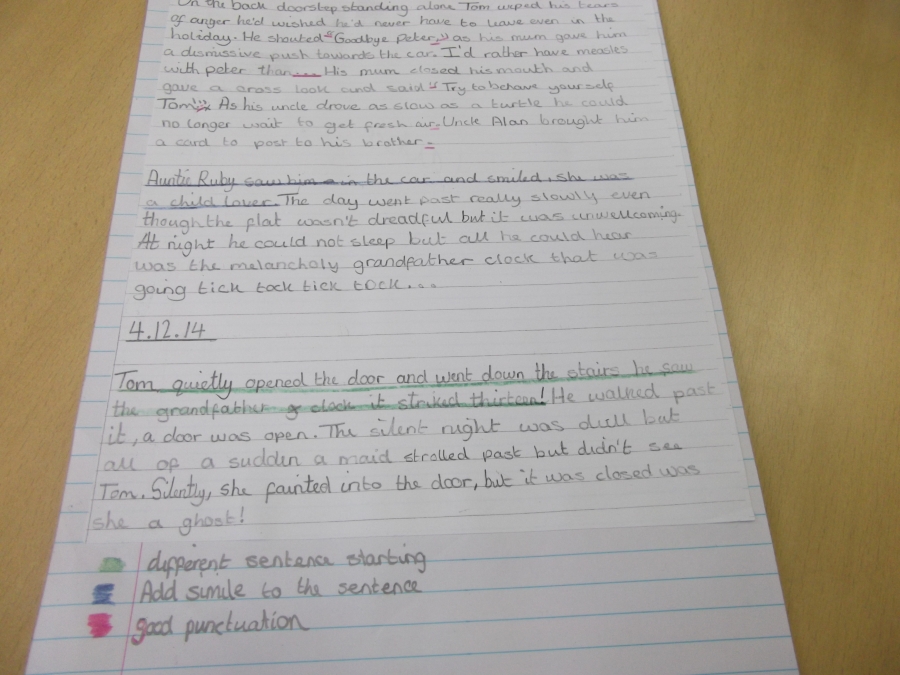 On the back doorstep standing alone Tom weped his tears
of anger he'd wished he'd never have to leave even in the
holiday. He shouted "Goodbye Peter," as his mum gave him
a dismissive push towards the car. I'd rather have measles
with peter than.... His mum closed his mouth and
gave a cross look and said "Try to behave yourself
Tom". As his uncle drove as slow as a turtle he could
no longer wait to get fresh air. Uncle Alan brought him
a card to post to his brother.
Auntie Ruby saw him in the car and smiled, she was
a child lover. The day went past really slowly even
though the flat wasn't dreadful but it was unwellcoming.
At night he could not sleep but all he could hear
was the melancholy grandfather clock that was
going tick tock tick tock....
4.12.14
Tom quietly opened the door and went down the stairs he saw
the grandfather clock it striked thirteen! He walked past
it, a door was open. The silent night was dull but
all of a sudden a maid strolled past but didn't see
Tom. Silently, she fainted into the door, but it was closed was
she a ghost!
different sentence starting
Add simile to the sentence
good punctuation